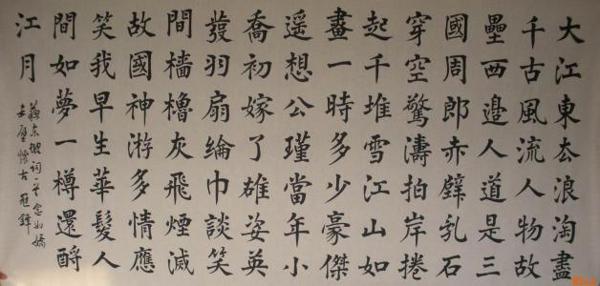 大江東去浪淘盡
千古風流人物故
壘西邊人道是三
國周郎赤壁乱石
穿空驚濤拍岸捲
起千堆雪江山如
畫一時多少豪傑
遥想公瑾當年小
喬初嫁了雄姿英
發羽扇綸巾談笑
間檣櫓灰飛煙滅
故國神游多情應
笑我早生華髮人
間如夢一樽還酹
江月
蘇東坡詞念奴嬌
赤壁懷古